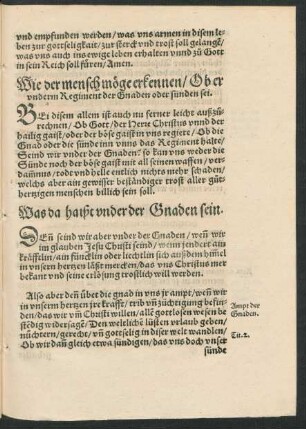 vnd empfunden werden/ was vns armen in disem le-
ben zur gottseligkait/ zur sterck vnd trost soll gelangẽ/
was vns auch ins ewige leben erhalten vnnd zů Gott
in sein Reich soll fůren/ Amen.
Wie der mensch möge erkennen/ Ob er
vnderm Regiment der Gnaden oder sünden sei.
BEi disem allem ist auch nu ferner leicht außzů-
rechnen/ Ob Gott/ der Herre Christus vnnd der
hailig gaist/ oder der böse gaist in vns regiere/ Ob die
Gnad oder die sünde inn vnns das Regiment halte/
Seind wir vnder der Gnaden/ so kan vns weder die
Sünde noch der böse gaist mit all seinen waffen/ ver-
dam̃nus/ todt vnd helle entlich nichts mehr schaden/
welchs aber ain gewisser bestándiger trost aller gůt-
hertzigen menschen billich sein soll.
Was da haißt vnder der Gnaden sein.
DEñ seind wir aber vnder der Gnaden/ weñ wir
im glauben Jesu Christi seind/ wenn jendert ain
kráfftlin/ ain füncklin oder liechtlin sich auß dem him̃el
in vnsern hertzen láßt mercken/ das vns Christus mer
bekant vnd seine erlösung tröstlich will werden.
Also aber deñ übet die gnad in vns jr ampt/ weñ wir
in vnserm hertzen jre krafft/ trib vñ züchtigung befin-
den/ das wir vm̃ Christi willen/ alle gottlosen wesen be
stẽdig widersagẽ/ Den weltlichẽ lüsten vrlaub geben/
nüchtern/ gerecht/ vñ gottselig in diser welt wandlen/
Ob wir dañ gleich etwa sündigen/ das vns doch vnser
sünde
Ampt der
Gnaden.
Tit. 2.